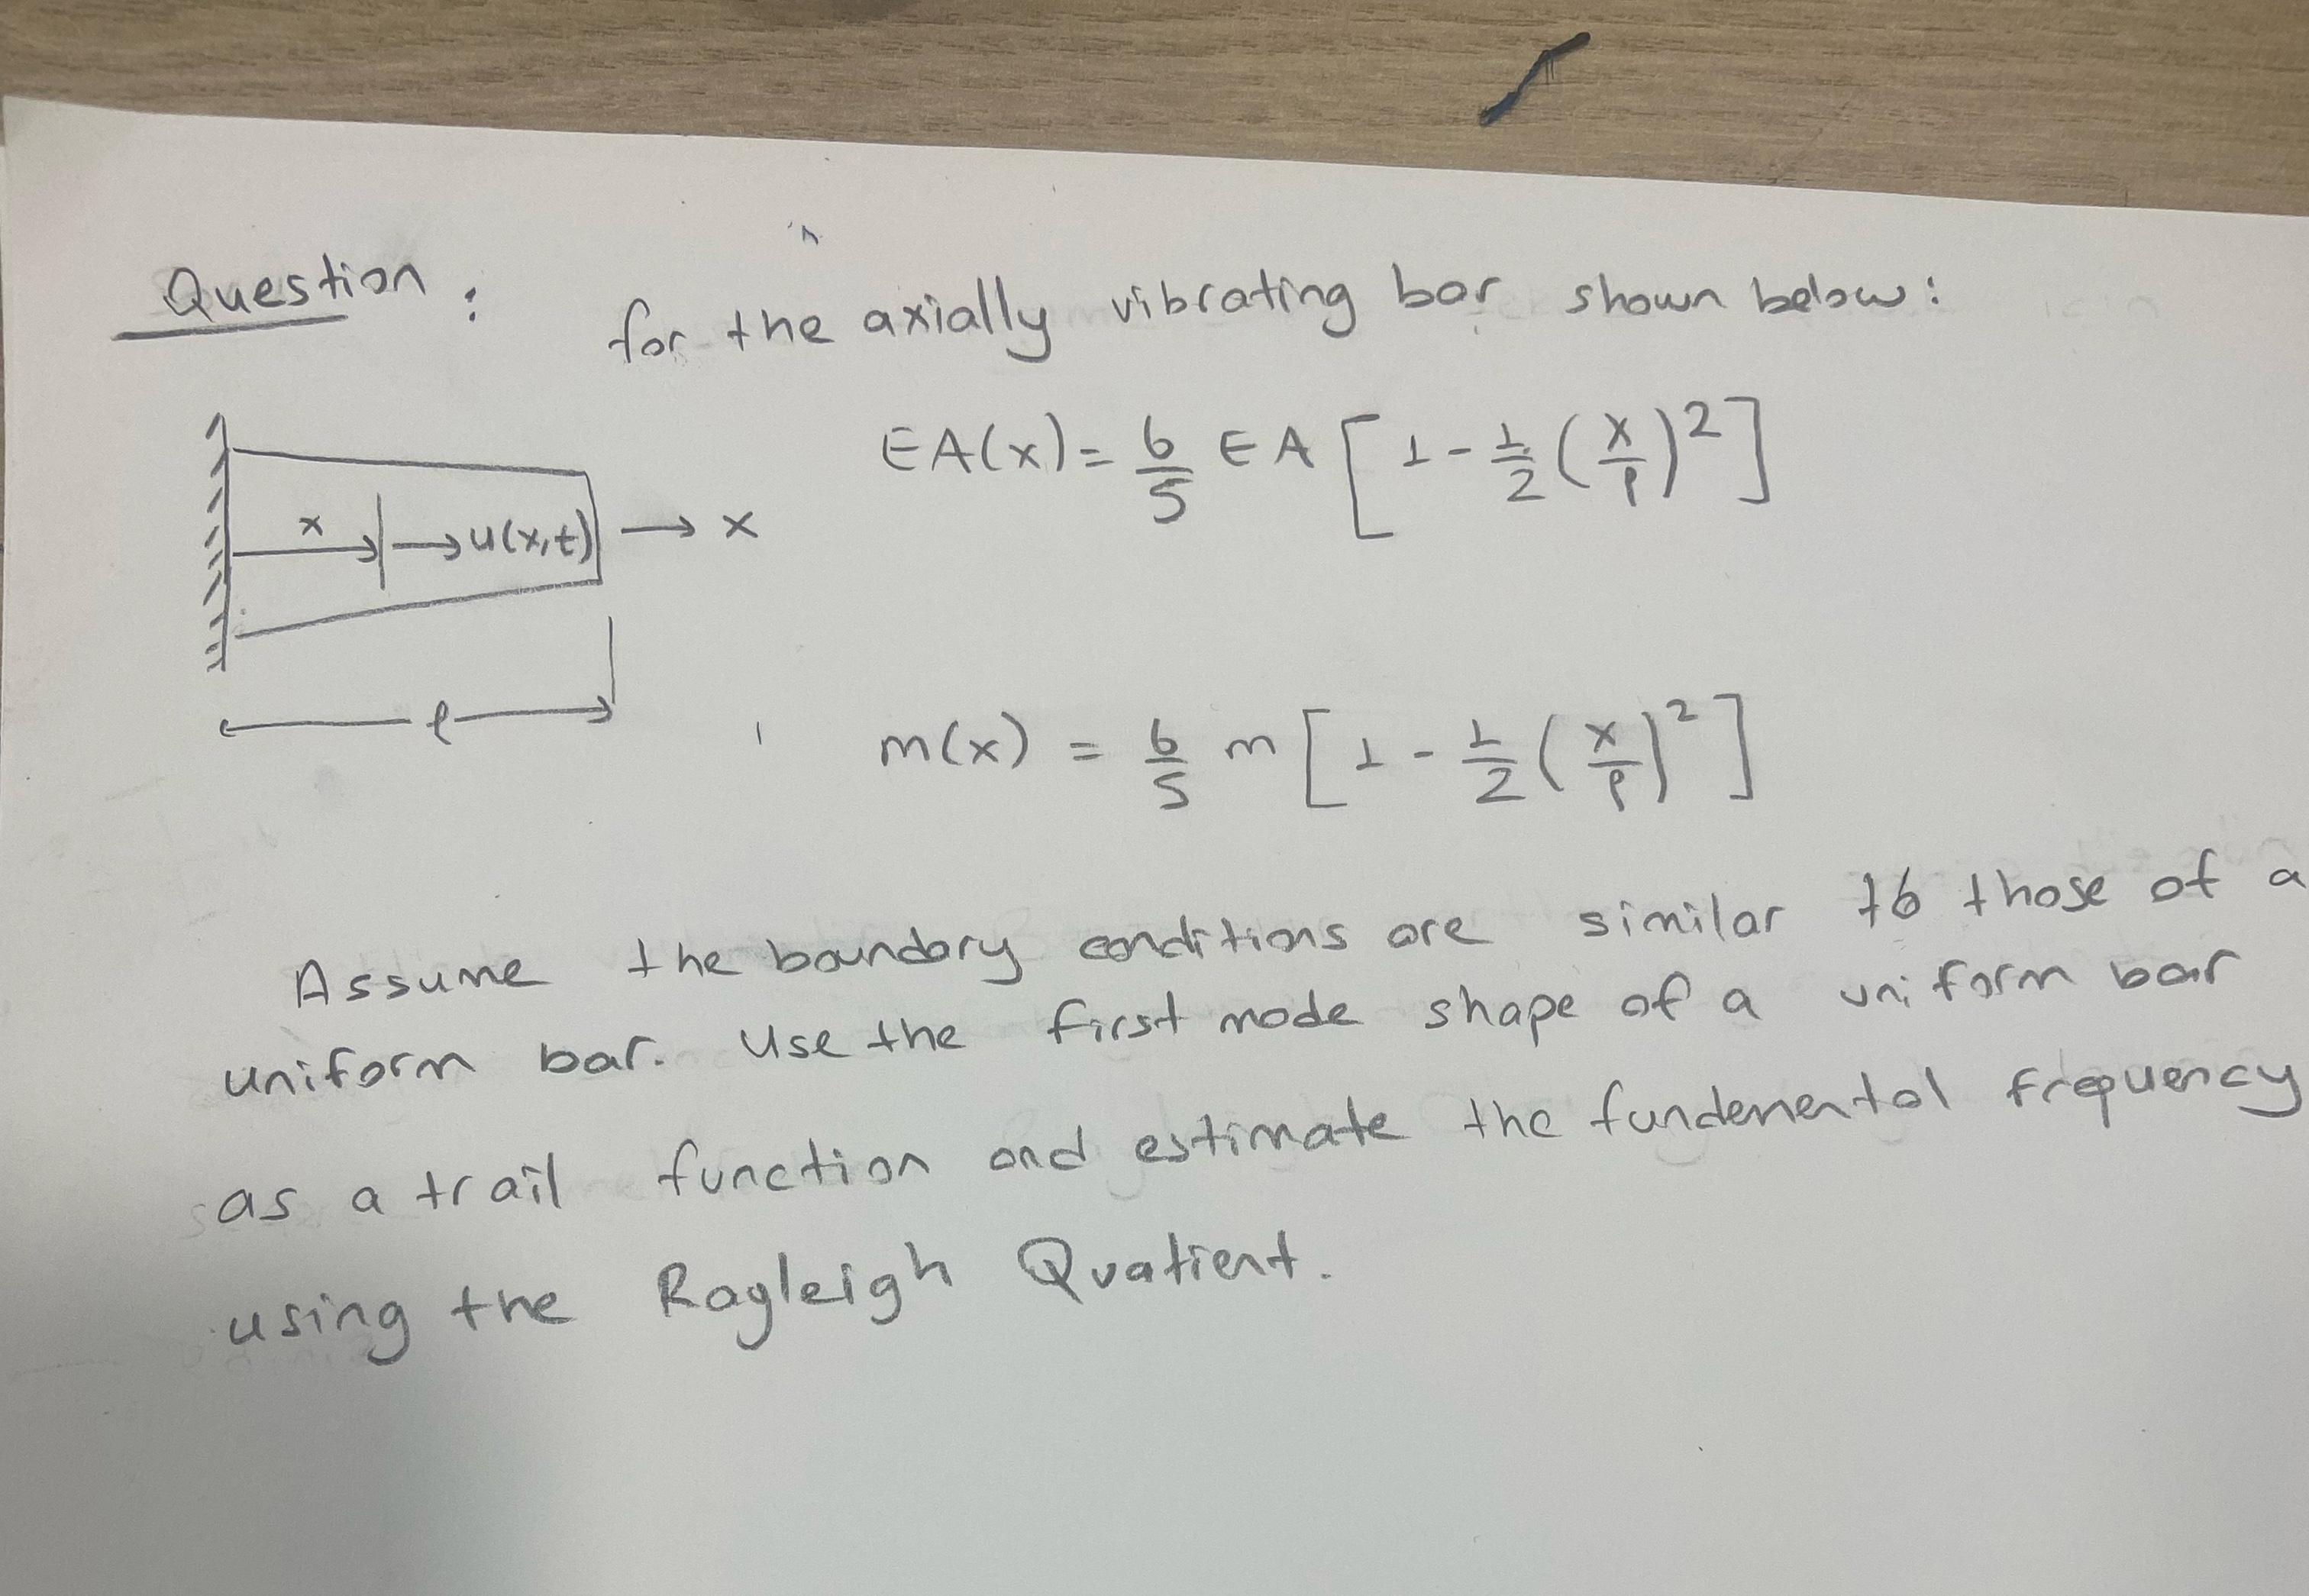 Question : for the axially vibrating bar shown below:
EA(x) = 6/5 EA [1 - 1/2 (x/l)^2]
x → u(x,t) → x
l
m(x) = 6/5 m [1 - 1/2 (x/l)^2]
Assume the boundary conditions are similar to those of a
uniform bar. Use the first mode shape of a uniform bar
as a trail function and estimate the fundemental frequency
using the Rayleigh Quatient.